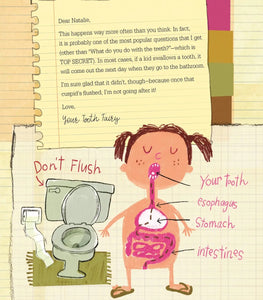 Dear Natalie,
This happens way more often than you think. In fact,
it is probably one of the most popular questions that I get
(other than "What do you do with the teeth?"—which is
TOP SECRET). In most cases, if a kid swallows a tooth, it
will come out the next day when they go to the bathroom.
I'm sure glad that it didn't, though—because once that
cupid's flushed, I'm not going after it!
Love,
Your Tooth Fairy
Don't Flush
Your tooth
esophagus
Stomach
intestines